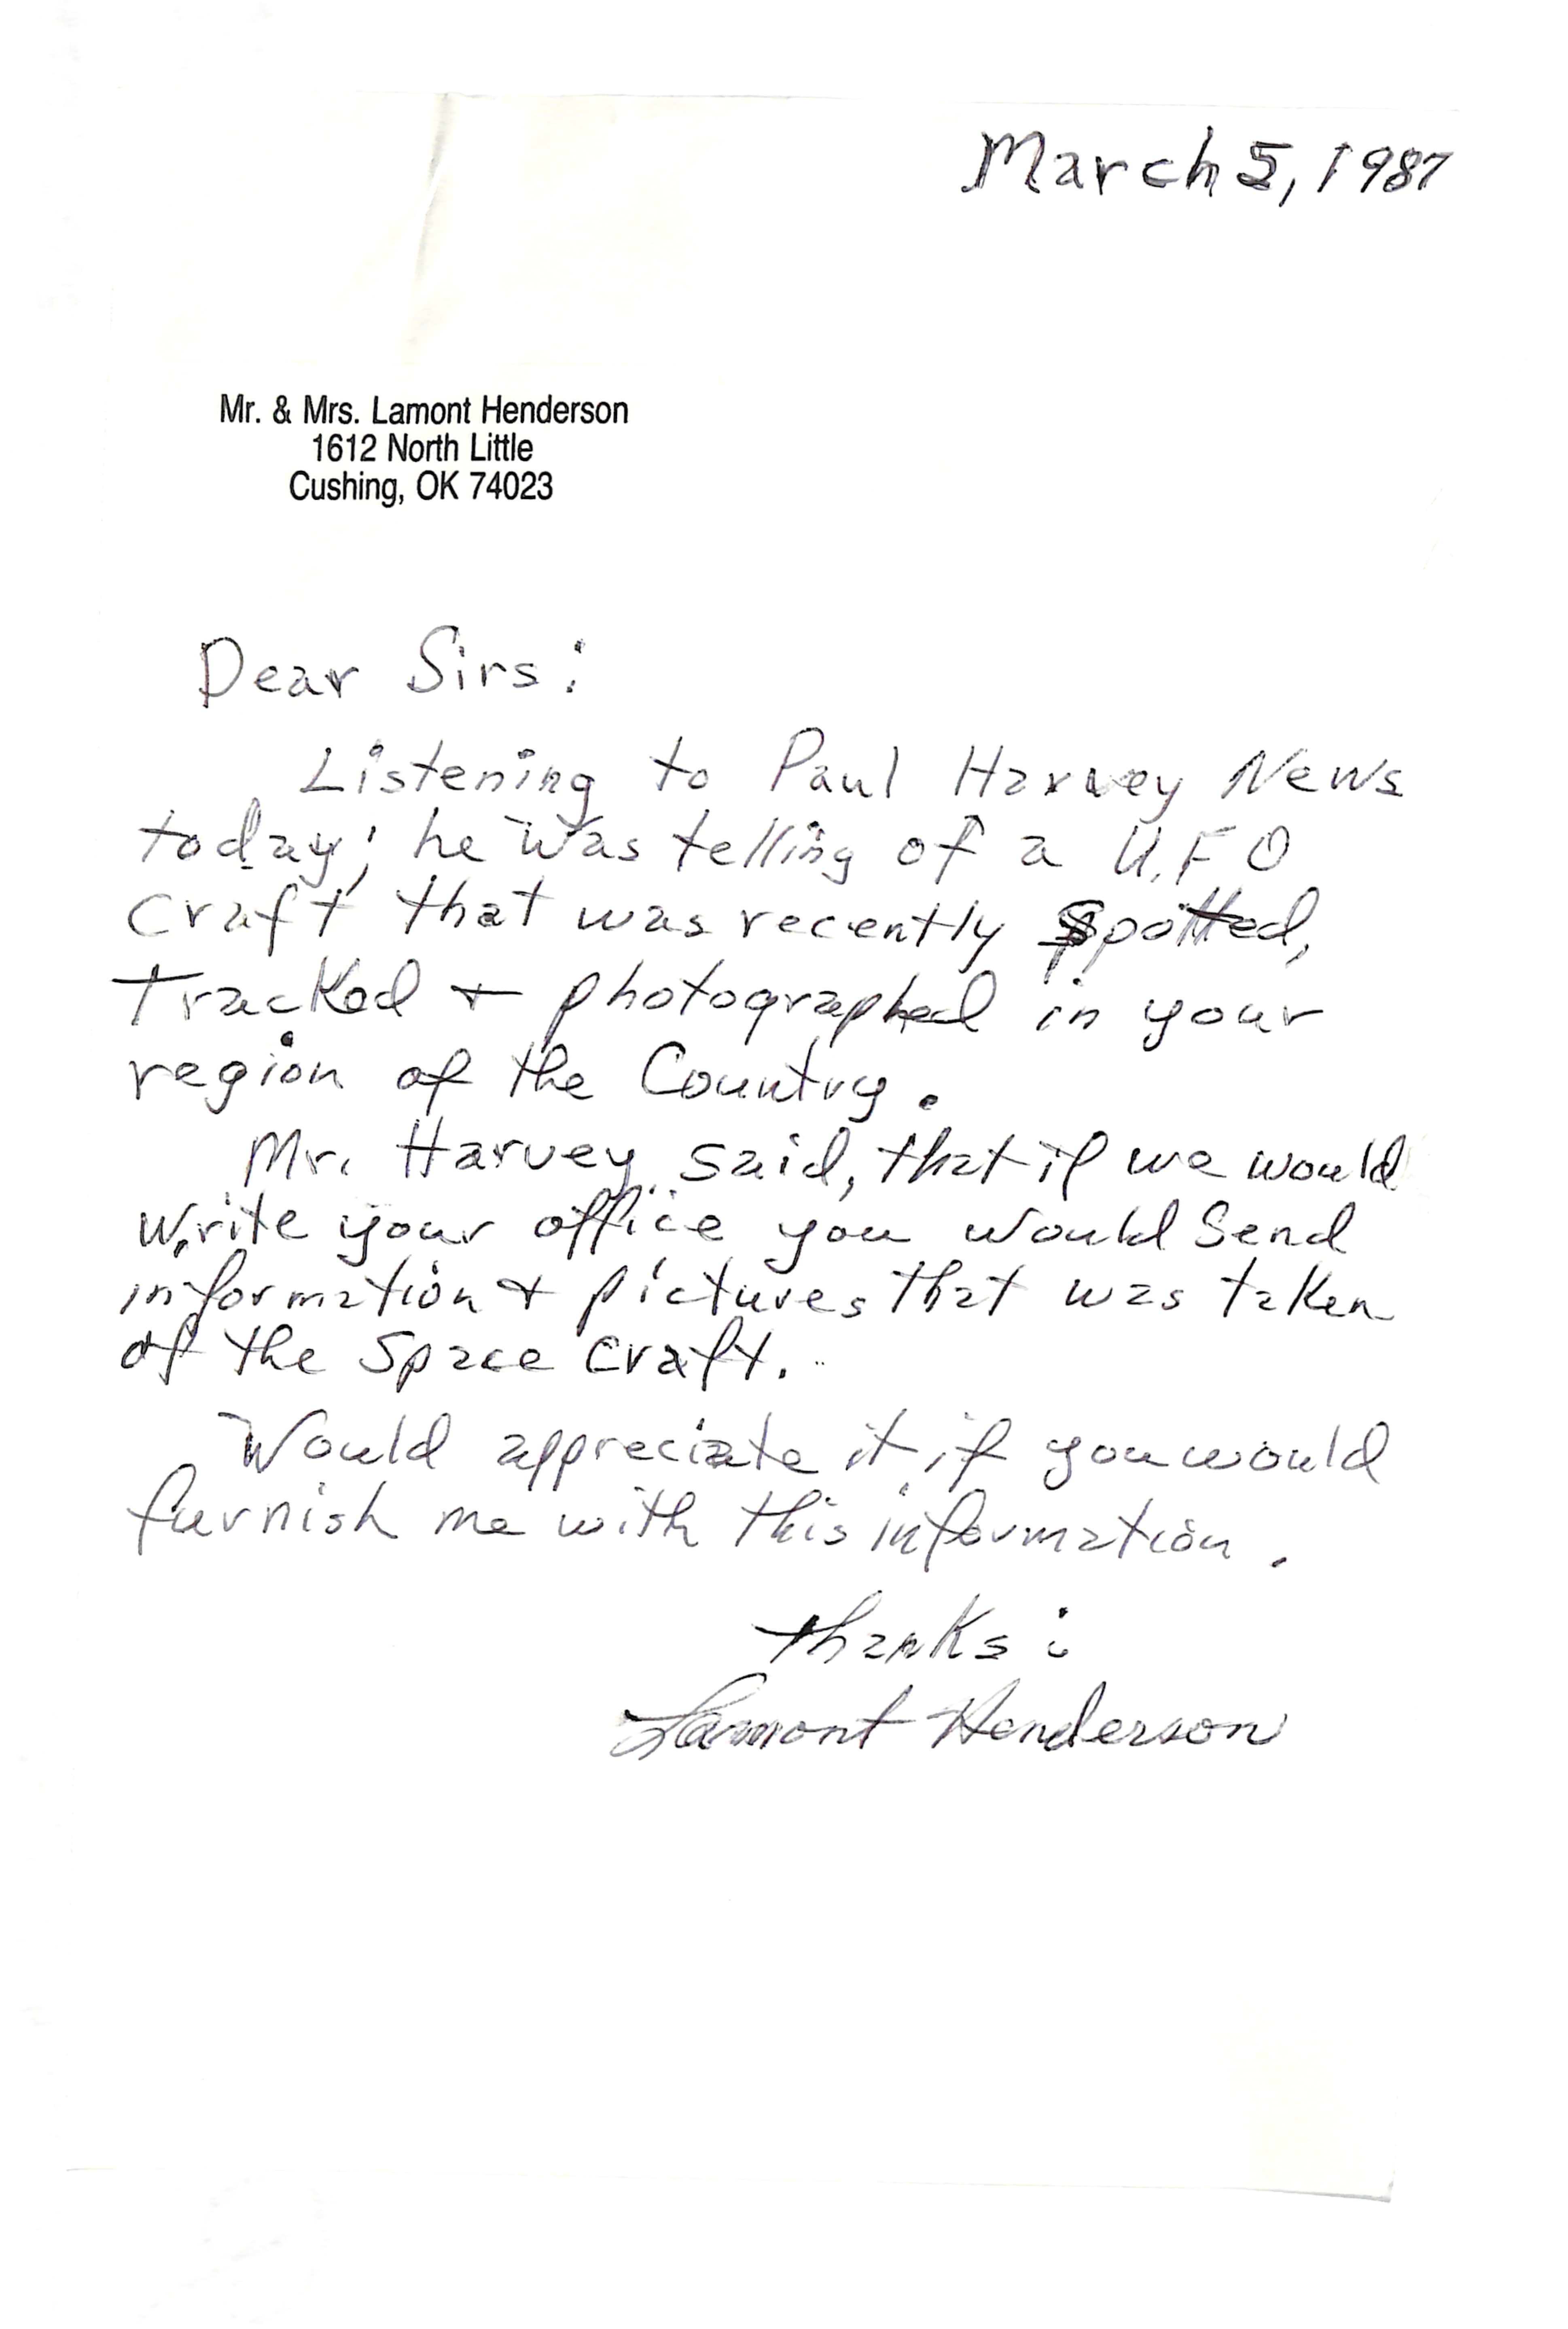 March 5, 1987
Mr. & Mrs. Lamont Henderson
1612 North Little
Cushing, OK 74023
Dear Sirs:
Listening to Paul Harvey News
today; he was telling of a U.F.O
craft that was recently spotted,
tracked + photographed in your
region of the Country.
Mr. Harvey said, that if we would
write your office you would send
information + pictures that was taken
of the Space Craft.
Would appreciate it if you would
furnish me with this information.
thanks:
Lamont Henderson